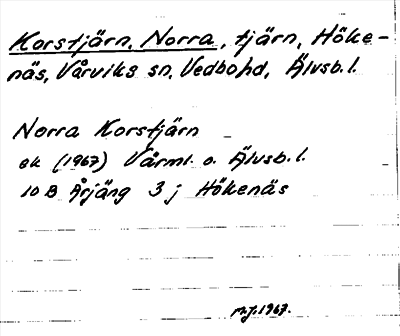 Korstjärn, Norra, tjärn, Höke-
näs, Vårviks sn, Vedbo hd, Älvsb. l.
Norra Korstjärn
ek (1967) Värml. o. Älvsb. l.
10 B Årjäng 3 j Hökenäs
M.J. 1967.